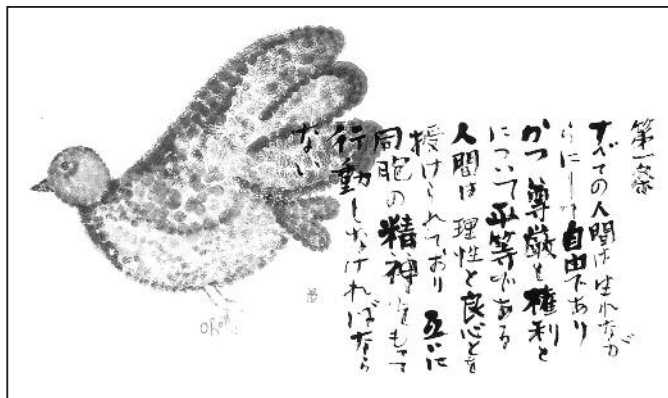 第一条
すべての人間は生れなが
らにして自由であり
かつ 尊厳と権利と
について平等である
人間は理性と良心とを
授けられており 互いに
同胞の精神をもって
行動しなければなら
ない